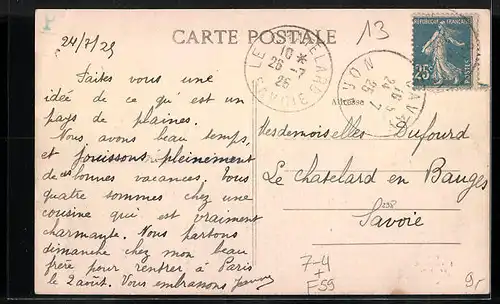 CARTE POSTALE
24/7/25
13
REPUBLIQUE FRANÇAISE
25c
LE CHATELARD
16 *
26 - 7
25
SAVOIE
NORD
24 - 7
25
Adresse
Faites vous une
idée de ce qu'est un
pays de plaines.
Nous avons beau temps,
et jouissons pleinement
de ces bonnes vacances. Tous
quatre sommes chez une
cousine qui est vraiment
charmante. Nous partons
dimanche chez mon beau
frère pour rentrer à Paris
le 2 août. Vous embrassons
Mesdemoiselles Dufourd
Le Chatelard en Bauges
Savoie
258
7-4
+
F59
9,-